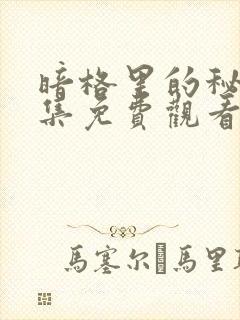 暗格里的秘
集免費觀看
馬塞尔 馬里耶